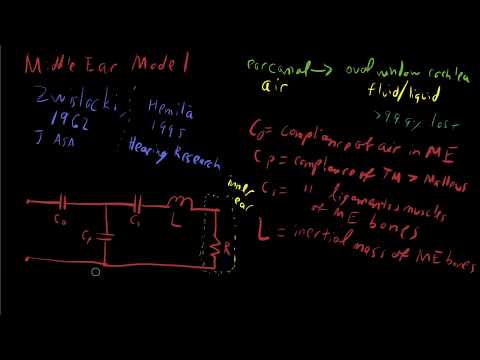 Middle Ear Model
Zwislocki,
1962
J ASA
Hemilä
1995
Hearing Research
ear canal → oval window cochlea
air
fluid/liquid
>99.9% lost
C₀ = compliance of air in ME
Cp = compliance of TM > Malleus
C₁ = " ligaments & muscles
of ME bones
L = inertial mass of ME bones
inner
ear
C₀
C₁
L
Cp
R